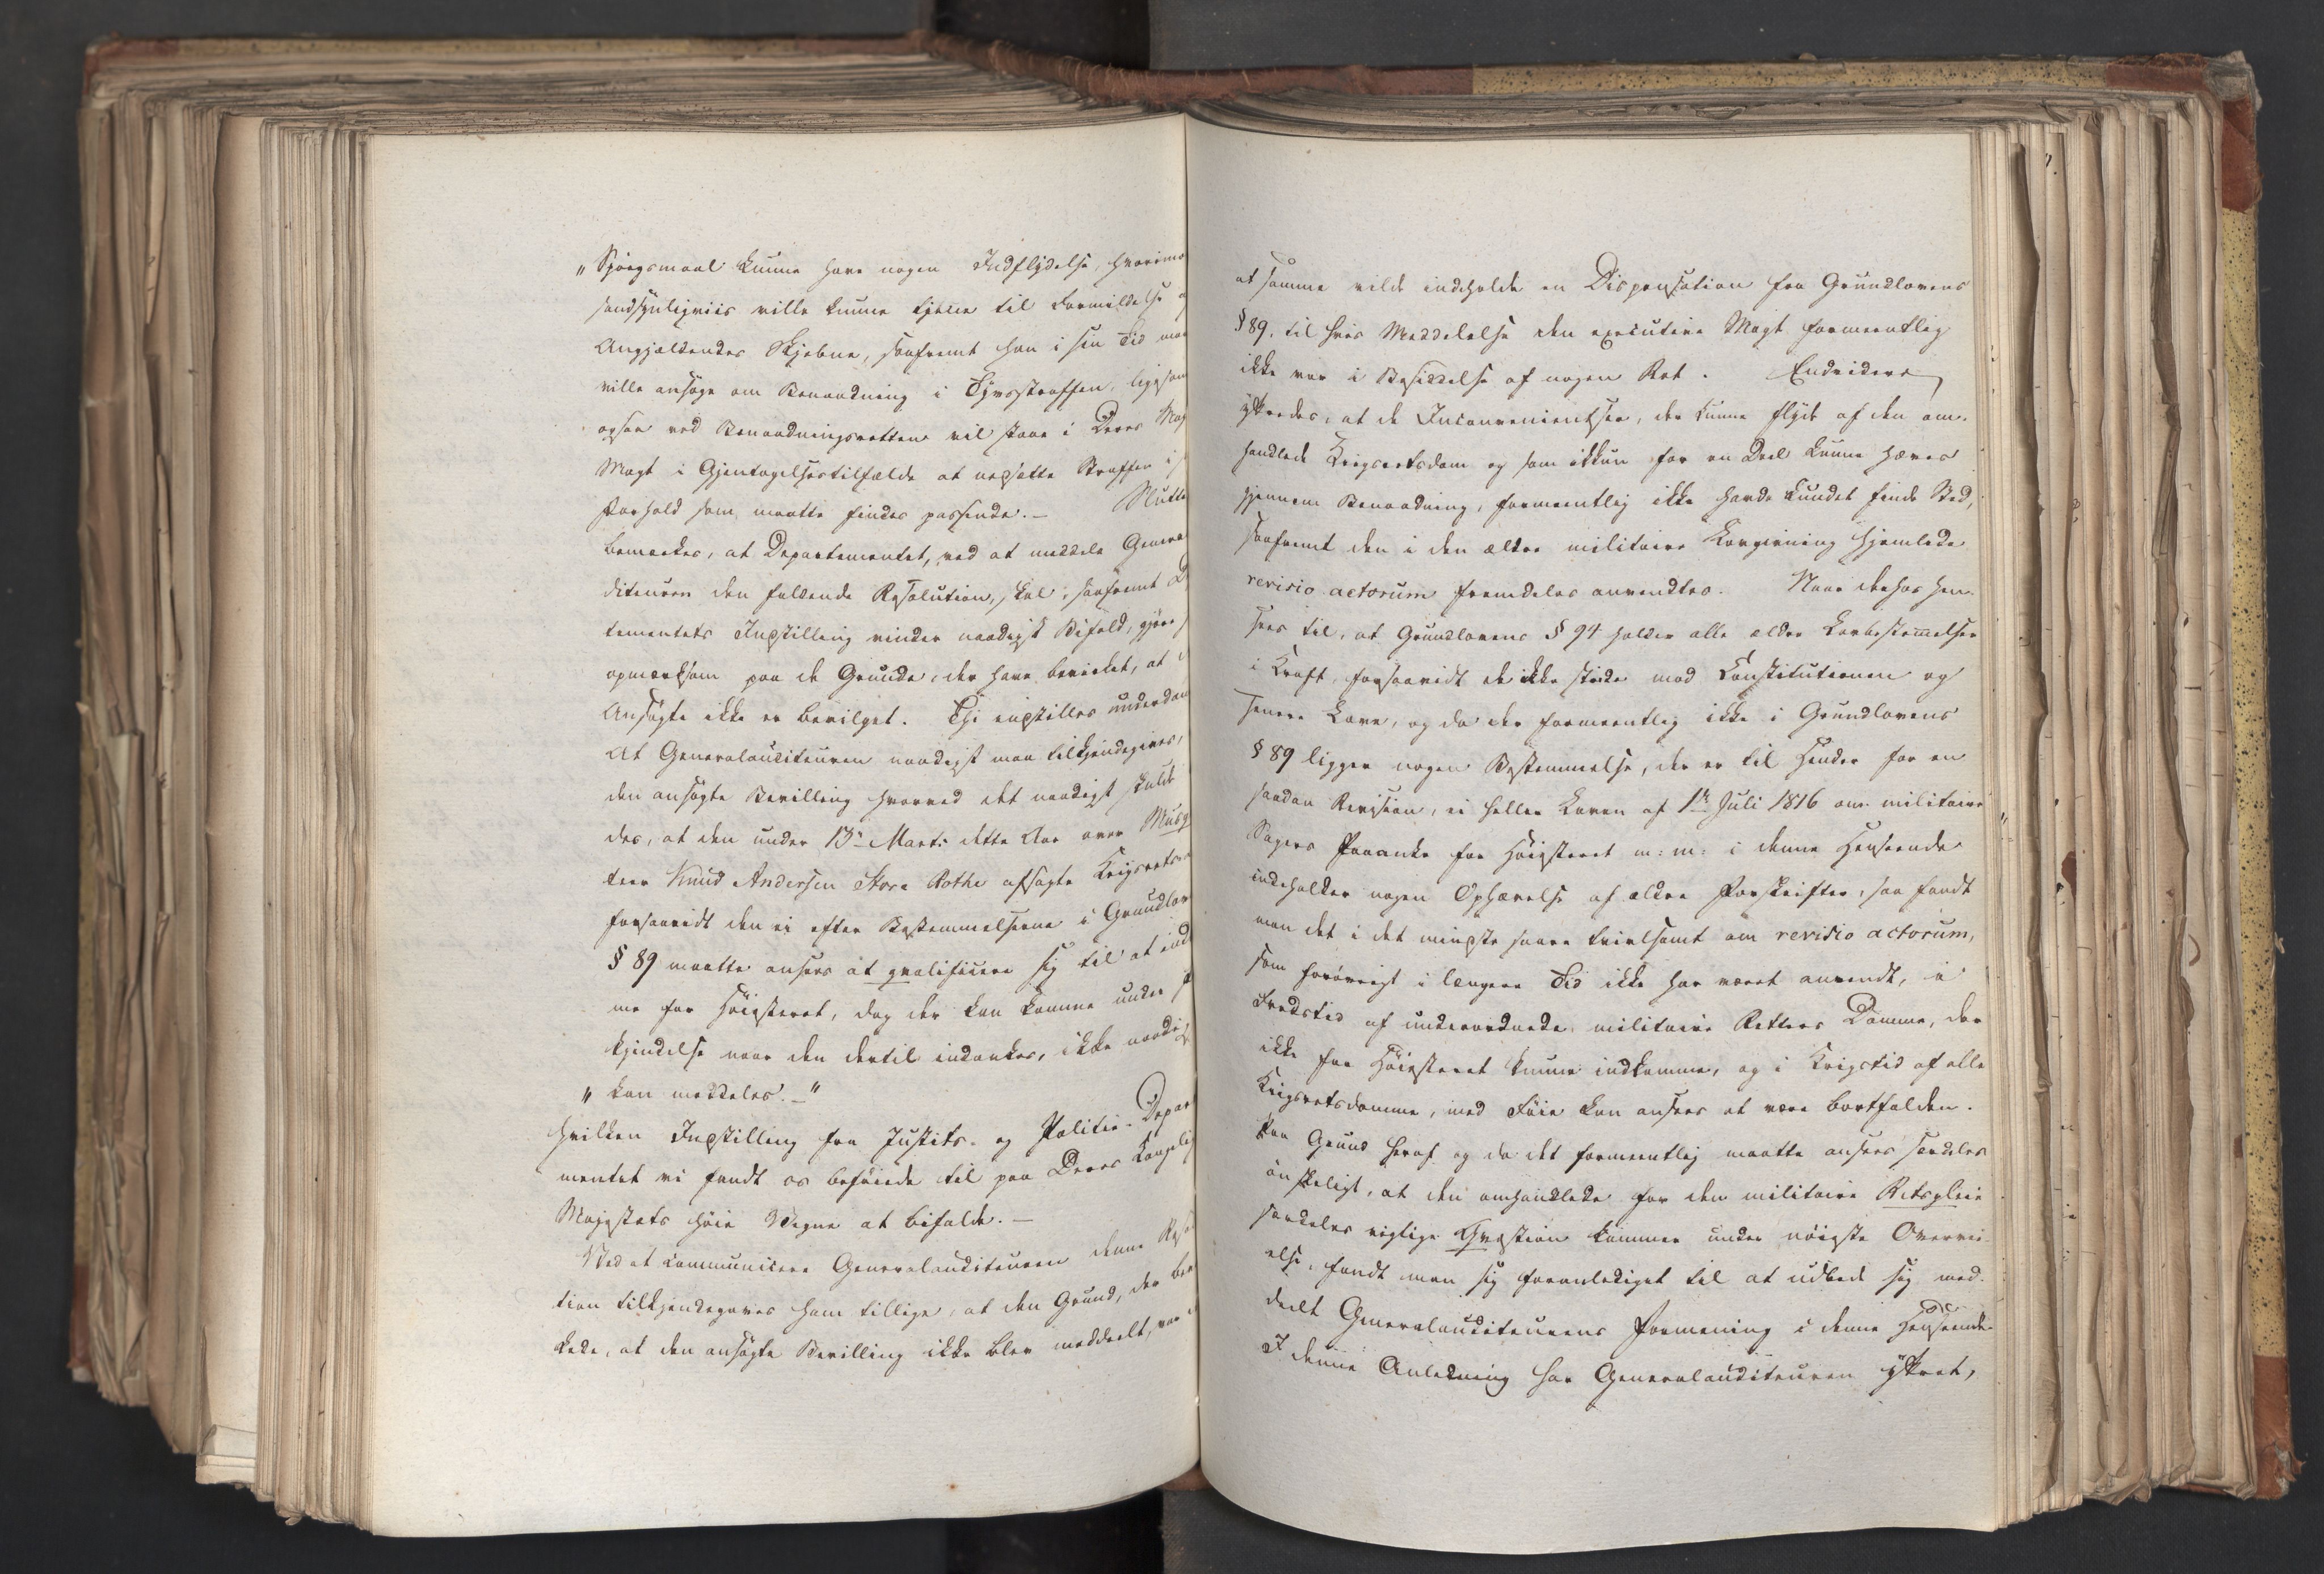 „Spörgsmaal kunne have nogen Indflydelse, hvorimo
sandsynligviis ville kunne tjene til Formildelse a
Angjældendes Skjebne, saafremt han i sin Tid maa
ville ansøge om Benaadning i Tyvsstraffen, ligesom
ogsaa ved Benaadningsretten vil staae i Deres Maj
Magt i Gjentagelsestilfælde at nedsætte Straffen i
Forhold som maatte findes passende.— Slutte
bemærkes, at Departementet, ved at meddele Genera
diteuren den faldende Resolution, skal, saafremt D
tementets Indstilling vinder naadigst Bifald, gjøre
opmærksom paa de Grunde, der have bevirket, at
Ansøgte ikke er bevilget. Thi indstilles underdan
At Generalauditeuren naadigst maa tilkjendegives,
den ansøgte Bevilling hvorved det naadigst skulde
des, at den under 13de Marts dette Aar over Musq
teer Knud Andersen Store Rothe afsagte Krigsrets
forsaavidt den ei efter Bestemmelserne i Grundlov
§ 89 maatte ansees at qvalificere sig til at ind
me for Høiesteret, dog der kan komme under
kjendelse naar den dertil indankes, ikke naadig
„kan meddeles.—"
hvilken Indstilling fra Justits- og Politie-Depar
mentet vi fandt os beføiede til paa Deres Kongelig
Majestæts høie Vegne at bifalde.—
Ved at communicere Generalauditeuren denne Reso
tion tilkjendegaves ham tillige, at den Grund, der bev
kede, at den ansøgte Bevilling ikke blev meddeelt, var
at samme vilde indeholde en Dispensation fra Grundlovens
§ 89, til hvis Meddelelse den executive Magt formeentlig
ikke var i Besiddelse af nogen Ret. Endvidere
yttredes, at de Inconvenientser, der kunne flyde af den om-
handlede Krigsretsdom og som ikkun for en Deel kunne hæves
gjennem Benaadning, formeentlig ikke havde kundet finde Sted,
saafremt den i den ældre militaire Lovgivning hjemlede
revisio actorum fremdeles anvendtes. Naar derhos hen-
sees til, at Grundlovens § 94 holder alle ældre Lovbestemmelser
i Kraft, forsaavidt de ikke stride mod Constitutionen og
senere Love, og da der formeentlig ikke i Grundlovens
§ 89 ligger nogen Bestemmelse, der er til Hinder for en
saadan Revision, ei heller Loven af 1ste Juli 1816 om militaire
Sagers Paaanke for Høiesteret m: m: i denne Henseende
indeholder nogen Ophævelse af ældre Forskrifter, saa fandt
man det i det mindste saare tvivlsomt om revisio actorum,
som forøvrigt i længere Tid ikke har været anvendt, i
Fredstid af underordnede militaire Retters Domme, der
ikke for Høiesteret kunne indkomme, og i Krigstid af alle
Krigsretsdomme, med Føie kan ansees at være bortfalden.
Paa Grund heraf og da det formeentlig maatte ansees særdeles
ønskeligt, at den omhandlede for den militaire Retspleie
særdeles vigtige Qvæstion kommer under nøieste Overvei-
else, fandt man sig foranlediget til at udbede sig med-
deelt Generalauditeurens Formening i denne Henseende.
I denne Anledning har Generalauditeuren yttret,